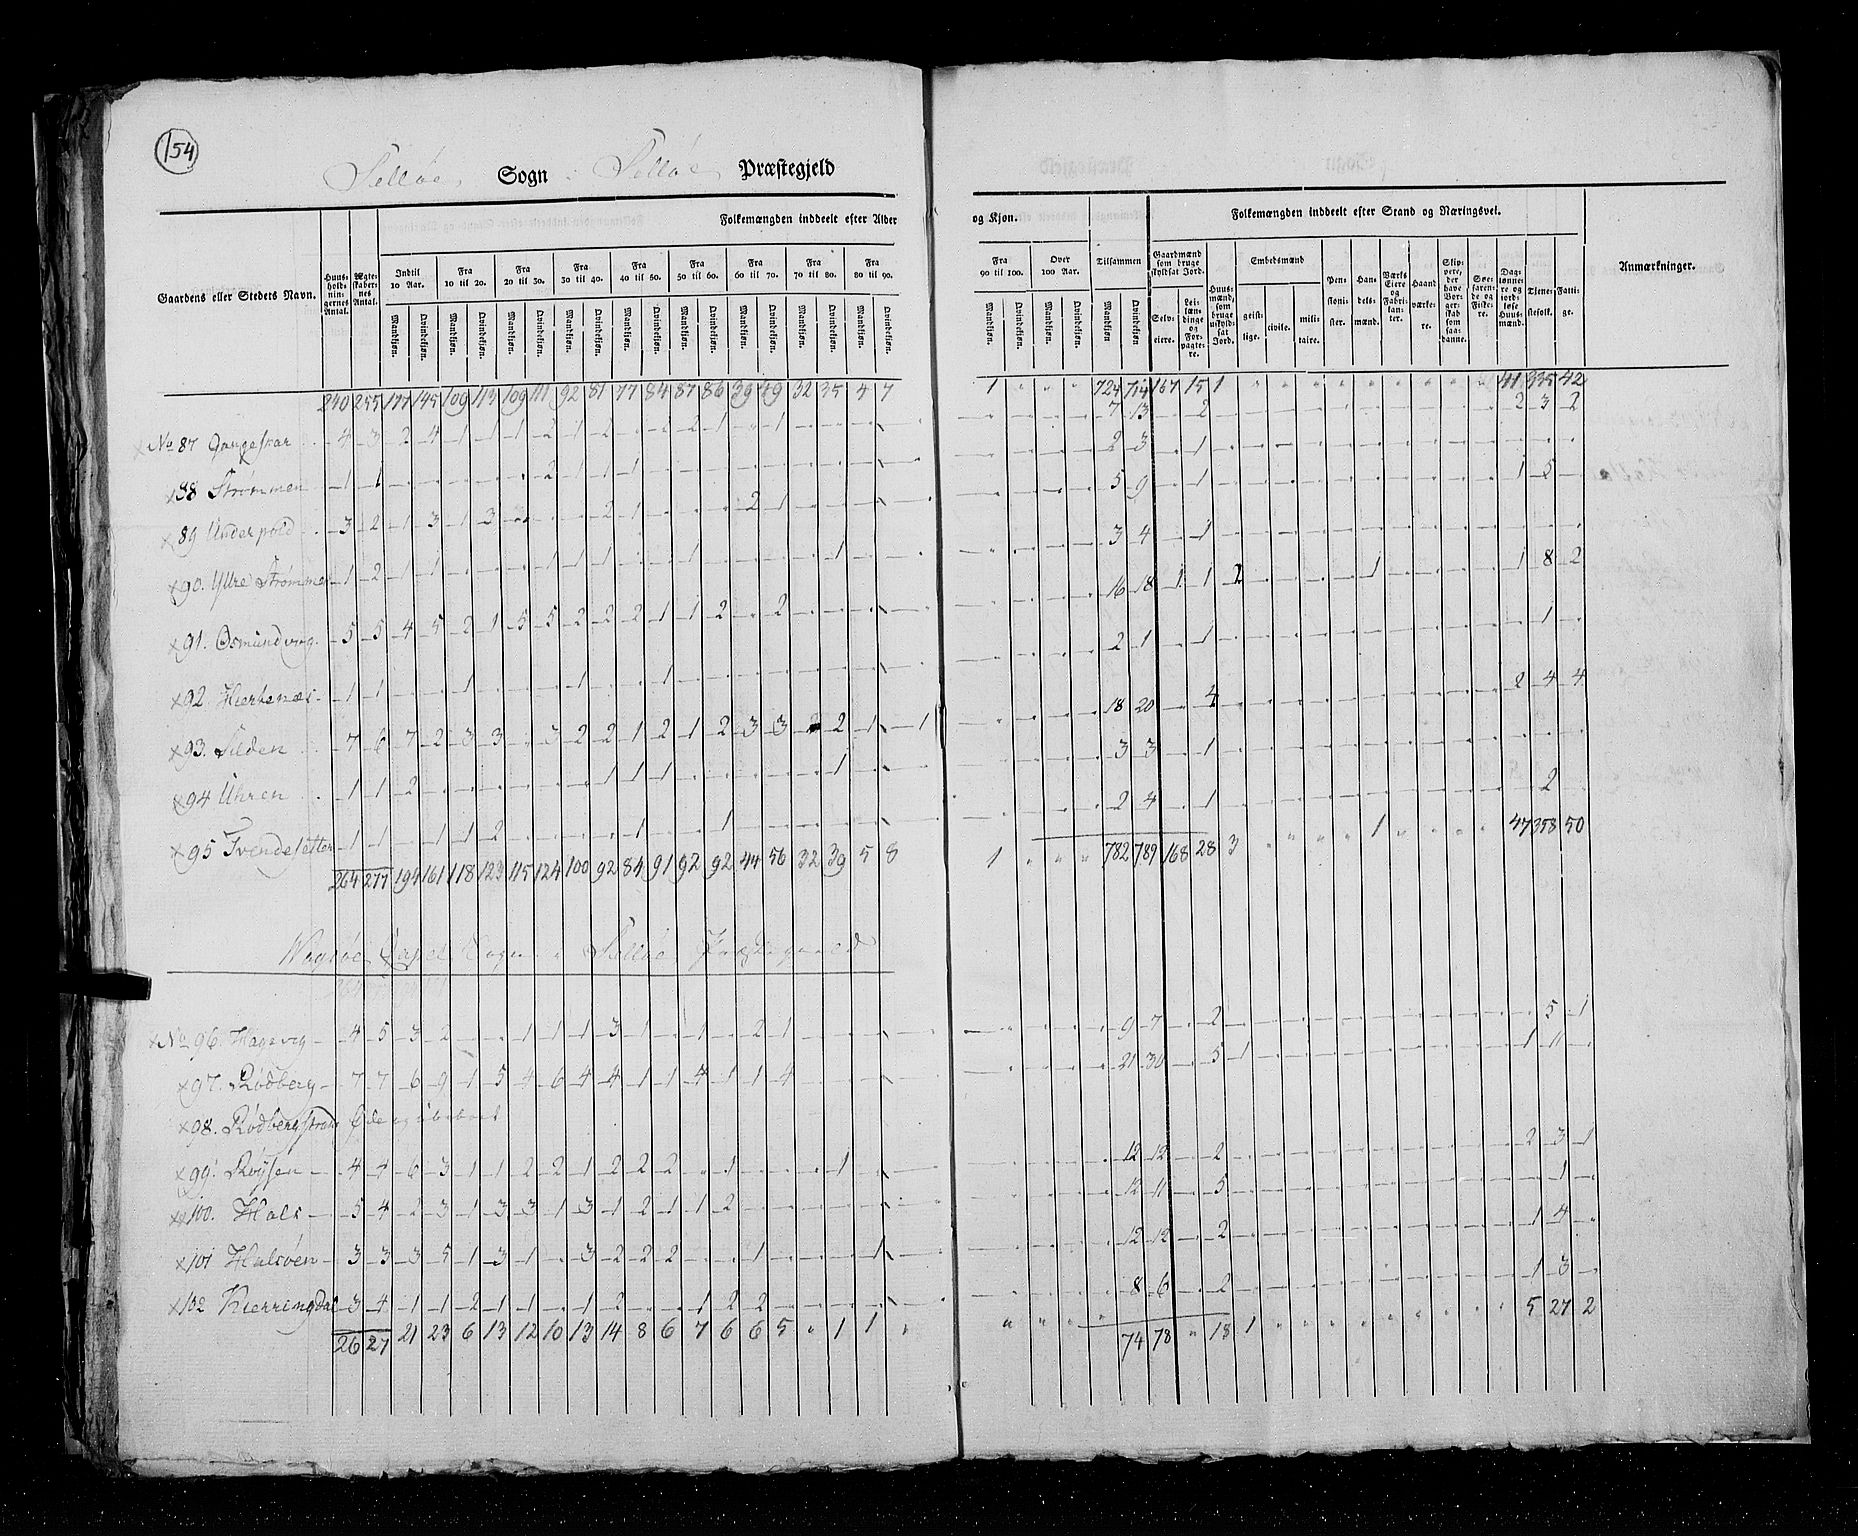 154
Selløe Sogn i Selløe Præstegjeld
Gaardens eller Stedets Navn. | Huus-holdnin-gernes Antal. | Ægte-skaber-nes Antal. | Folkemængden inddeelt efter Alder og Kjøn. | Folkemængden inddeelt efter Stand og Næringsvei. | Anmærkninger.
Indtil 10 Aar. | Fra 10 til 20. | Fra 20 til 30. | Fra 30 til 40. | Fra 40 til 50. | Fra 50 til 60. | Fra 60 til 70. | Fra 70 til 80. | Fra 80 til 90. | Fra 90 til 100. | Over 100 Aar. | Tilsammen
Mandkjøn. Qvindekjøn.
Gaardmænd som bruge skyldsat Jord. Selveiere. Leilændinge og Forpagtere. | Huusmænd, som bruge uskyldsat Jord. | Embedsmænd geistlige. civile. militaire. | Pensionister. | Handelsmænd. | Værks Eiere og Fabrikanter. | Haandværkere. | Skippere, der have Borgerskab som saadanne. | Søefarende og Fiskere. | Daglønnere og jordløse Huusmænd. | Tjenestefolk. | Fattige.
240 255 177 145 109 113 109 111 92 81 77 84 87 86 39 49 32 35 4 7 1 " " " 724 714 167 15 1 " " " " " " " " " 41 335 42
No 87 Gangeskar 4 3 2 4 1 1 1 2 1 2 . 2 2 1 . 1 7 13 . 2 2 3 2
88 Strømmen 1 1 2 1 1 1 2 3 . 1
89 Underpold 3 2 1 3 1 3 2 1 2 1 5 9 . 1 1 5
90. Yttre Strømmen 1 2 1 1 1 1 1 1 1 3 4 . 1
91. Osmundvog 5 5 4 5 2 1 5 5 2 2 2 1 1 2 . 2 16 18 1 1 2 1 1 8 2
92 Hiertenæs 1 1 1 1 1 2 1 . 1 1
93. Silden 7 6 7 2 3 3 . 3 2 2 1 2 1 2 3 3 2 1 1 18 20 . 4 2 4 4
94 Uhren 1 1 2 1 1 1 1 3 3 . 1
95 Tvendesetter 1 1 . 1 1 2 1 1 2 4 . 1 2
264 277 194 161 118 123 115 124 100 92 84 91 92 92 44 56 32 39 5 8 1 " " " 782 789 168 28 3 " " " " 1 " " " " 47 358 50
Wogsøe Capel Sogn i Selløe Præstegield
No 96. Hagevig 4 5 3 2 . . 1 1 1 3 1 . 1 . 2 1 9 7 . 2 5 1
97. Rødberg 7 7 6 9 1 5 4 6 4 4 1 1 4 1 1 4 21 30 . 5 1 1 11
98. Rødbergstrand Øde og ubeboet
99. Røysen 4 4 6 3 1 1 2 2 1 2 2 2 . 1 1 12 12 . 2 2 3 1
100. Hals 5 4 2 3 1 3 3 1 3 1 2 1 1 2 12 11 . 5 1
101 Halsøen 3 3 3 5 1 3 1 . 3 2 2 2 1 1 12 12 . 2 1 4
102 Kierringdal 3 4 1 1 2 1 1 . 1 2 1 2 2 8 6 . 2 1 3
26 27 21 23 6 13 12 10 13 14 8 6 7 6 6 5 " 1 1 " " " " " 74 78 " 18 1 " " " " " " " " " 5 27 2